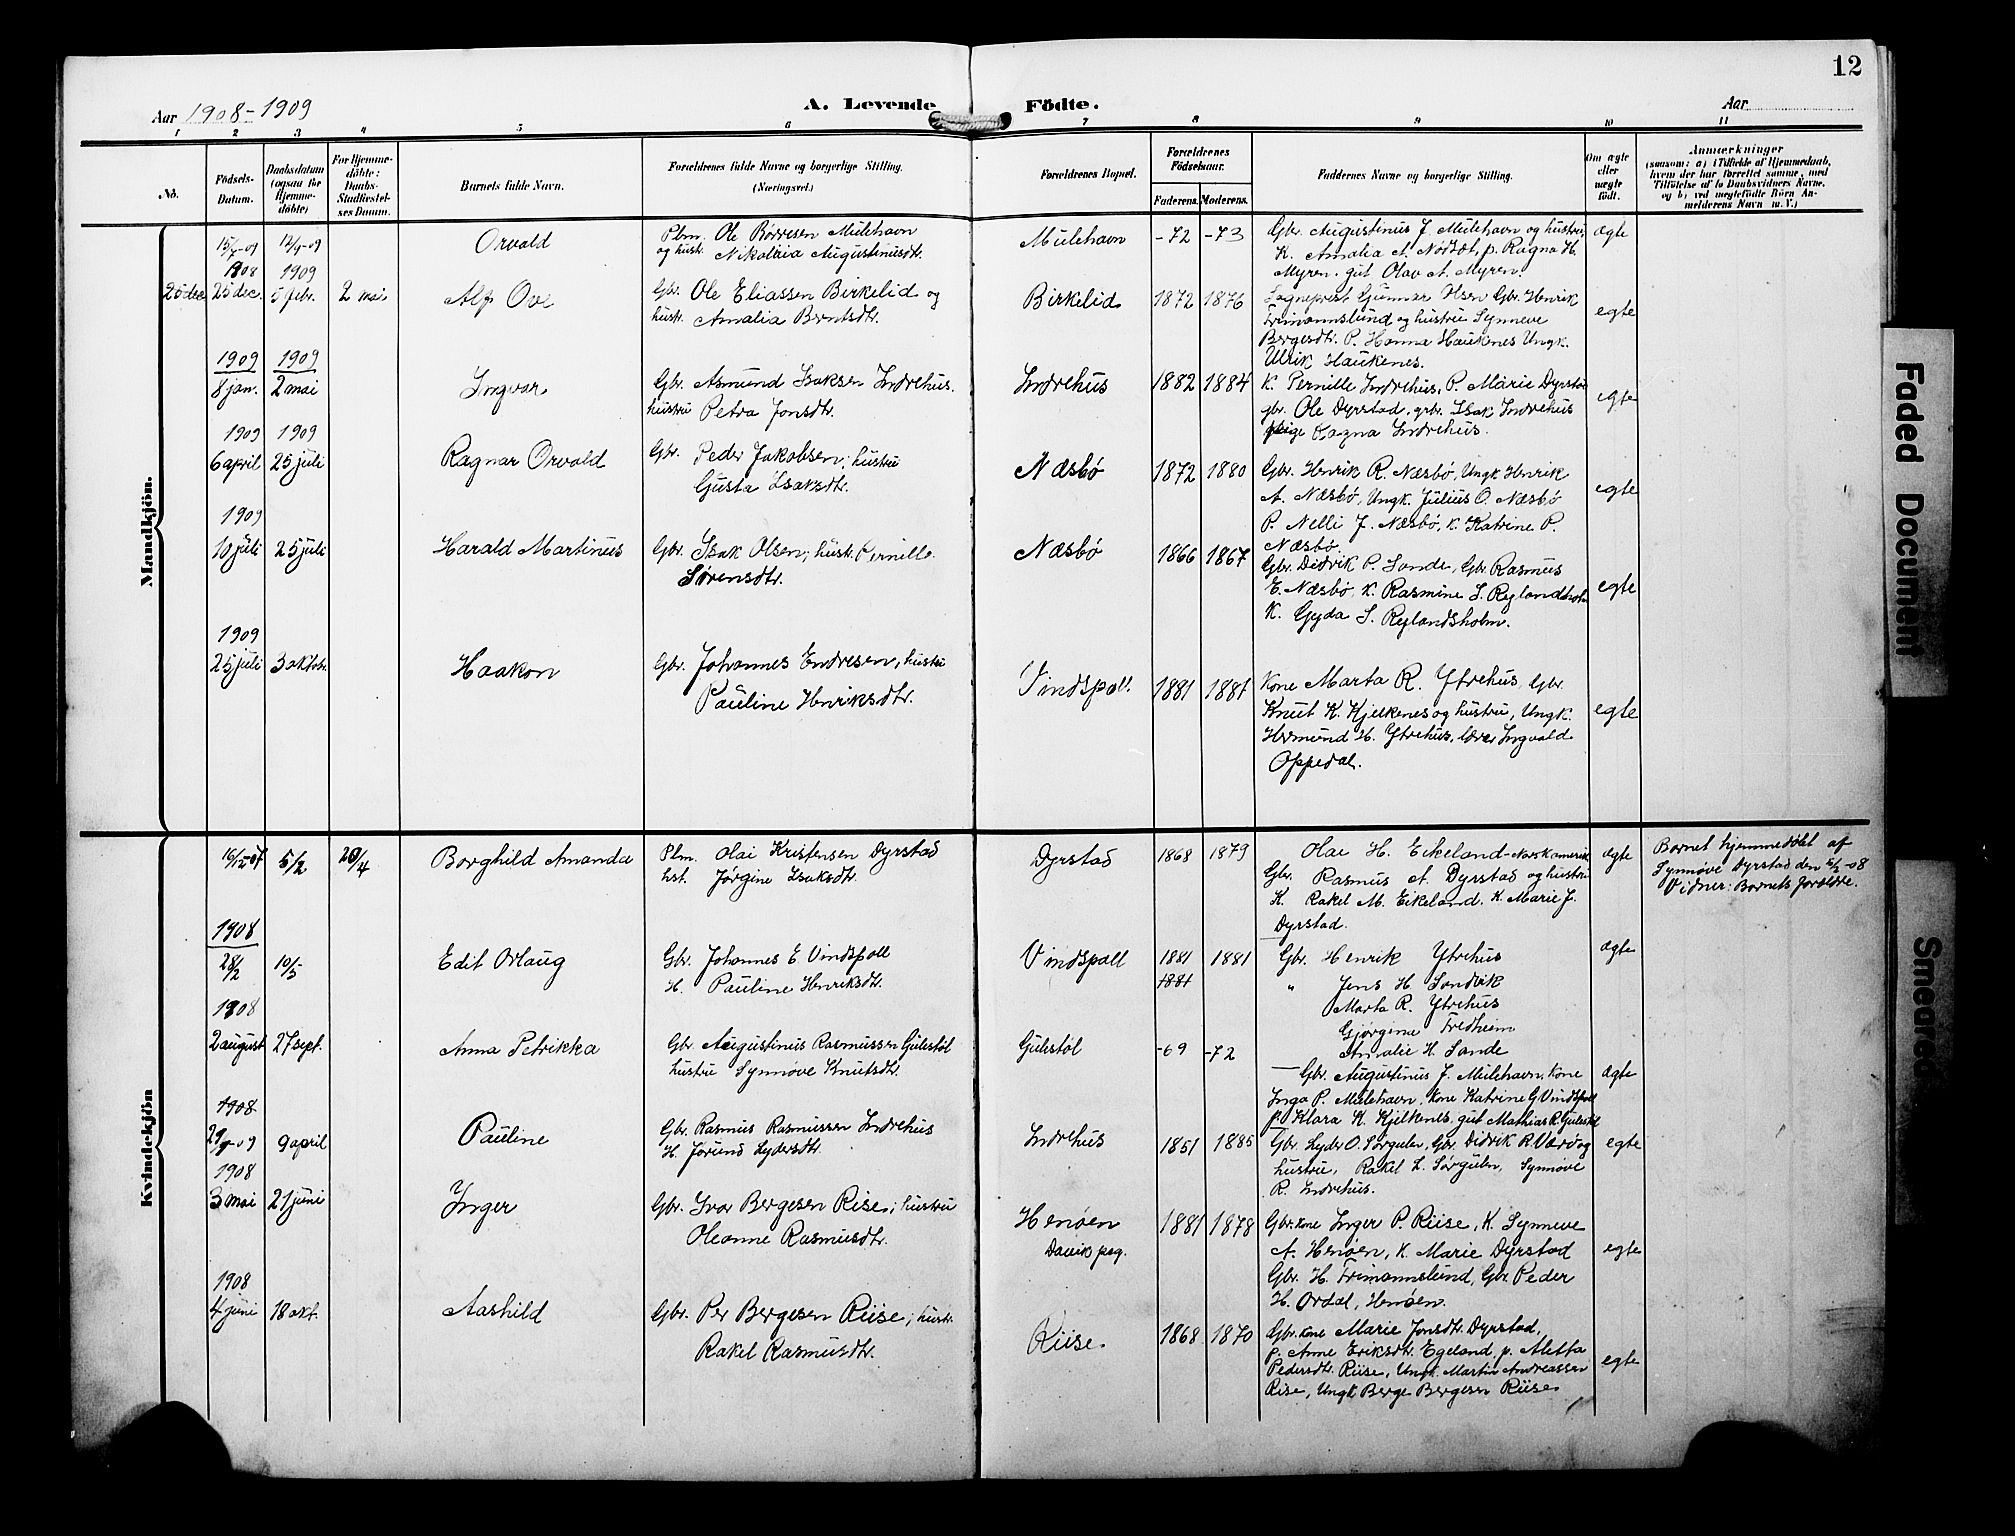 12
Aar 1908-1909
A. Levende Födte.
Aar
1 2 3 4 5 6 7 8 9 10 11
No.
Födsels-
Datum.
Daabsdatum
(ogsaa for
Hjemme-
döbte)
For Hjemme-
döbte:
Daabs-
Stadfæstel-
ses Datum.
Barnets fulde Navn.
Forældrenes fulde Navne og borgerlige Stilling.
(Næringsvei.)
Forældrenes Bopæl.
Forældrenes
Födselsaar.
Faderens. Moderens.
Faddernes Navne og borgerlige Stilling.
Om ægte
eller
uægte
födt.
Anmærkninger
(saasom: a) i Tilfælde af Hjemmedaab,
hvem der har forrettet samme, med
Tilföielse af to Daabsvidners Navne,
og b) ved uægtefödte Börn An-
melderens Navn m. V.)
Mandkjön.
Orvald
Plm. Ole Børresen Mulehavn
og hustr. Nikolaia Augustinusdtr.
Mulehavn -72 -73
Gbr. Augustinus J. Mulehavn og hustru,
K. Amalia A. p. Ragna H.
Myren. gut Olav A. Myren.
ægte
1908 1909
25 dec. 25 dec. 5 febr. 2 mai
Alf Ove
Gbr. Ole Eliassen Birkelid og
hustr. Amalia Berntsdtr.
Birkelid 1872 1876
Sogneprest Gunnar Olsen Gbr. Henrik
Frimannslund og hustru Synneve
Bergesdtr. P. Hanna Haukenes Ungk.
Ulrik Haukenes.
egte
1909 1909
8 jan. 2 mai
Ingvar
Gbr. Asmund Isaksen Indrehus.
hustru Petra Jonsdtr.
Indrehus 1882 1884
K. Pernille Indrehus, P. Marie Dyrstad
gbr. Ole Dyrstad. gbr. Isak Indrehus
pige Ragna Indrehus.
egte
1909 1909
6 april 25 juli
Ragnar Orvald
Gbr. Peder Jakobsen; hustru
Gusta Isaksdtr.
Næsbø 1872 1880
Gbr. Henrik R. Næsbø, Ungk. Henrik
A. Næsbø, Ungk. Julius O. Næsbø
P. Nelli J. Næsbø, K. Katrine P.
Næsbø.
egte
1909
10 juli 25 juli
Harald Martinus
Gbr. Isak Olsen; hustr. Pernille
Sørensdtr.
Næsbø 1866 1867
Gbr. Didrik P. Sande, Gbr. Rasmus
E. Næsbø, K. Rasmine S. Rylandsholm
K. Gyda S. Rylandsholm.
egte
1909
25 juli 3 oktobr.
Haakon
Gbr. Johannes Endresen, hustru
Pauline Henriksdtr.
Vindspoll. 1881 1881
Kone Marta R. Ytrehus, Gbr.
Knut K. Kjelkenes og hustru, Ungk.
Hermund H. Ytrehus, lærer Ingvald
Oppedal.
egte
Kvindekjön
5/2 29/4
Borghild Amanda
Plm. Olai Kristensen Dyrstad
hst. Jørgine Isaksdtr.
Dyrstad 1868 1879
Olai H. Eikeland - Norsk amerik
Gbr. Rasmus A. Dyrstad og hustru
K. Rakel M. Eikeland. K. Marie J.
Dyrstad.
ægte
Barnet hjemmedøbt af
Synnøve Dyrstad den 5/2-08
Vidner: Barnets forældre.
1908
28/2 10/5
Edit Olaug
Gbr. Johannes E Vindspoll
H. Pauline Henriksdtr.
Vindspoll 1881 1881
1881
Gbr. Henrik Ytrehus
" Jens H Sandvik
Marta R. Ytrehus
Gjørgine Fredheim
Amalie H. Sande
ægte
1908
2 august 27 sept.
Anna Petrikka
Gbr Augustinus Rasmussen Gulestøl
hustru Synnøve Knutsdtr.
Gulestøl -69 -72
Gbr. Augustinus J. Mulehavn, Kone
Inga P. Mulehavn, Kone Katrine G. Vindspoll
p. Klara K. Kjelkenes, gut Mathias R. Gulestøl
ægte
1908
9 april
Pauline
Gbr. Rasmus Rasmussen Indrehus
H. Jørund Lydersdtr.
Indrehus 1851 1885
Gbr. Lyder O. Sørgulen, Gbr. Didrik R. Værø og
hustru, Rakel L. Sørgulen, Synnøve
R. Indrehus.
egte
1908
3 mai 21 juni
Inger
Gbr. Ivar Bergesen Riise; hustru
Oleanne Rasmusdtr.
Henøen 1881 1878
Davik pgj.
Gbr. kone Inger P. Riise, K. Synneve
A. Henøen, K. Marie Dyrstad
Gbr. H. Frimannslund, Gbr. Peder
H. Ordal, Henøen.
egte
1908
4 juni 18 okt.
Aashild
Gbr. Per Bergesen Riise; hustr.
Rakel Rasmusdtr.
Riise. 1868 1870
Gbr. kone Marie Jonsdtr. Dyrstad,
p. Anne Eriksdtr. Egeland, p. Aletta
Pedersdtr. Riise, Ungk. Martin Andreassen
Riise, Ungk Berge Bergesen Riise.
egte
Faded Document
Smeared